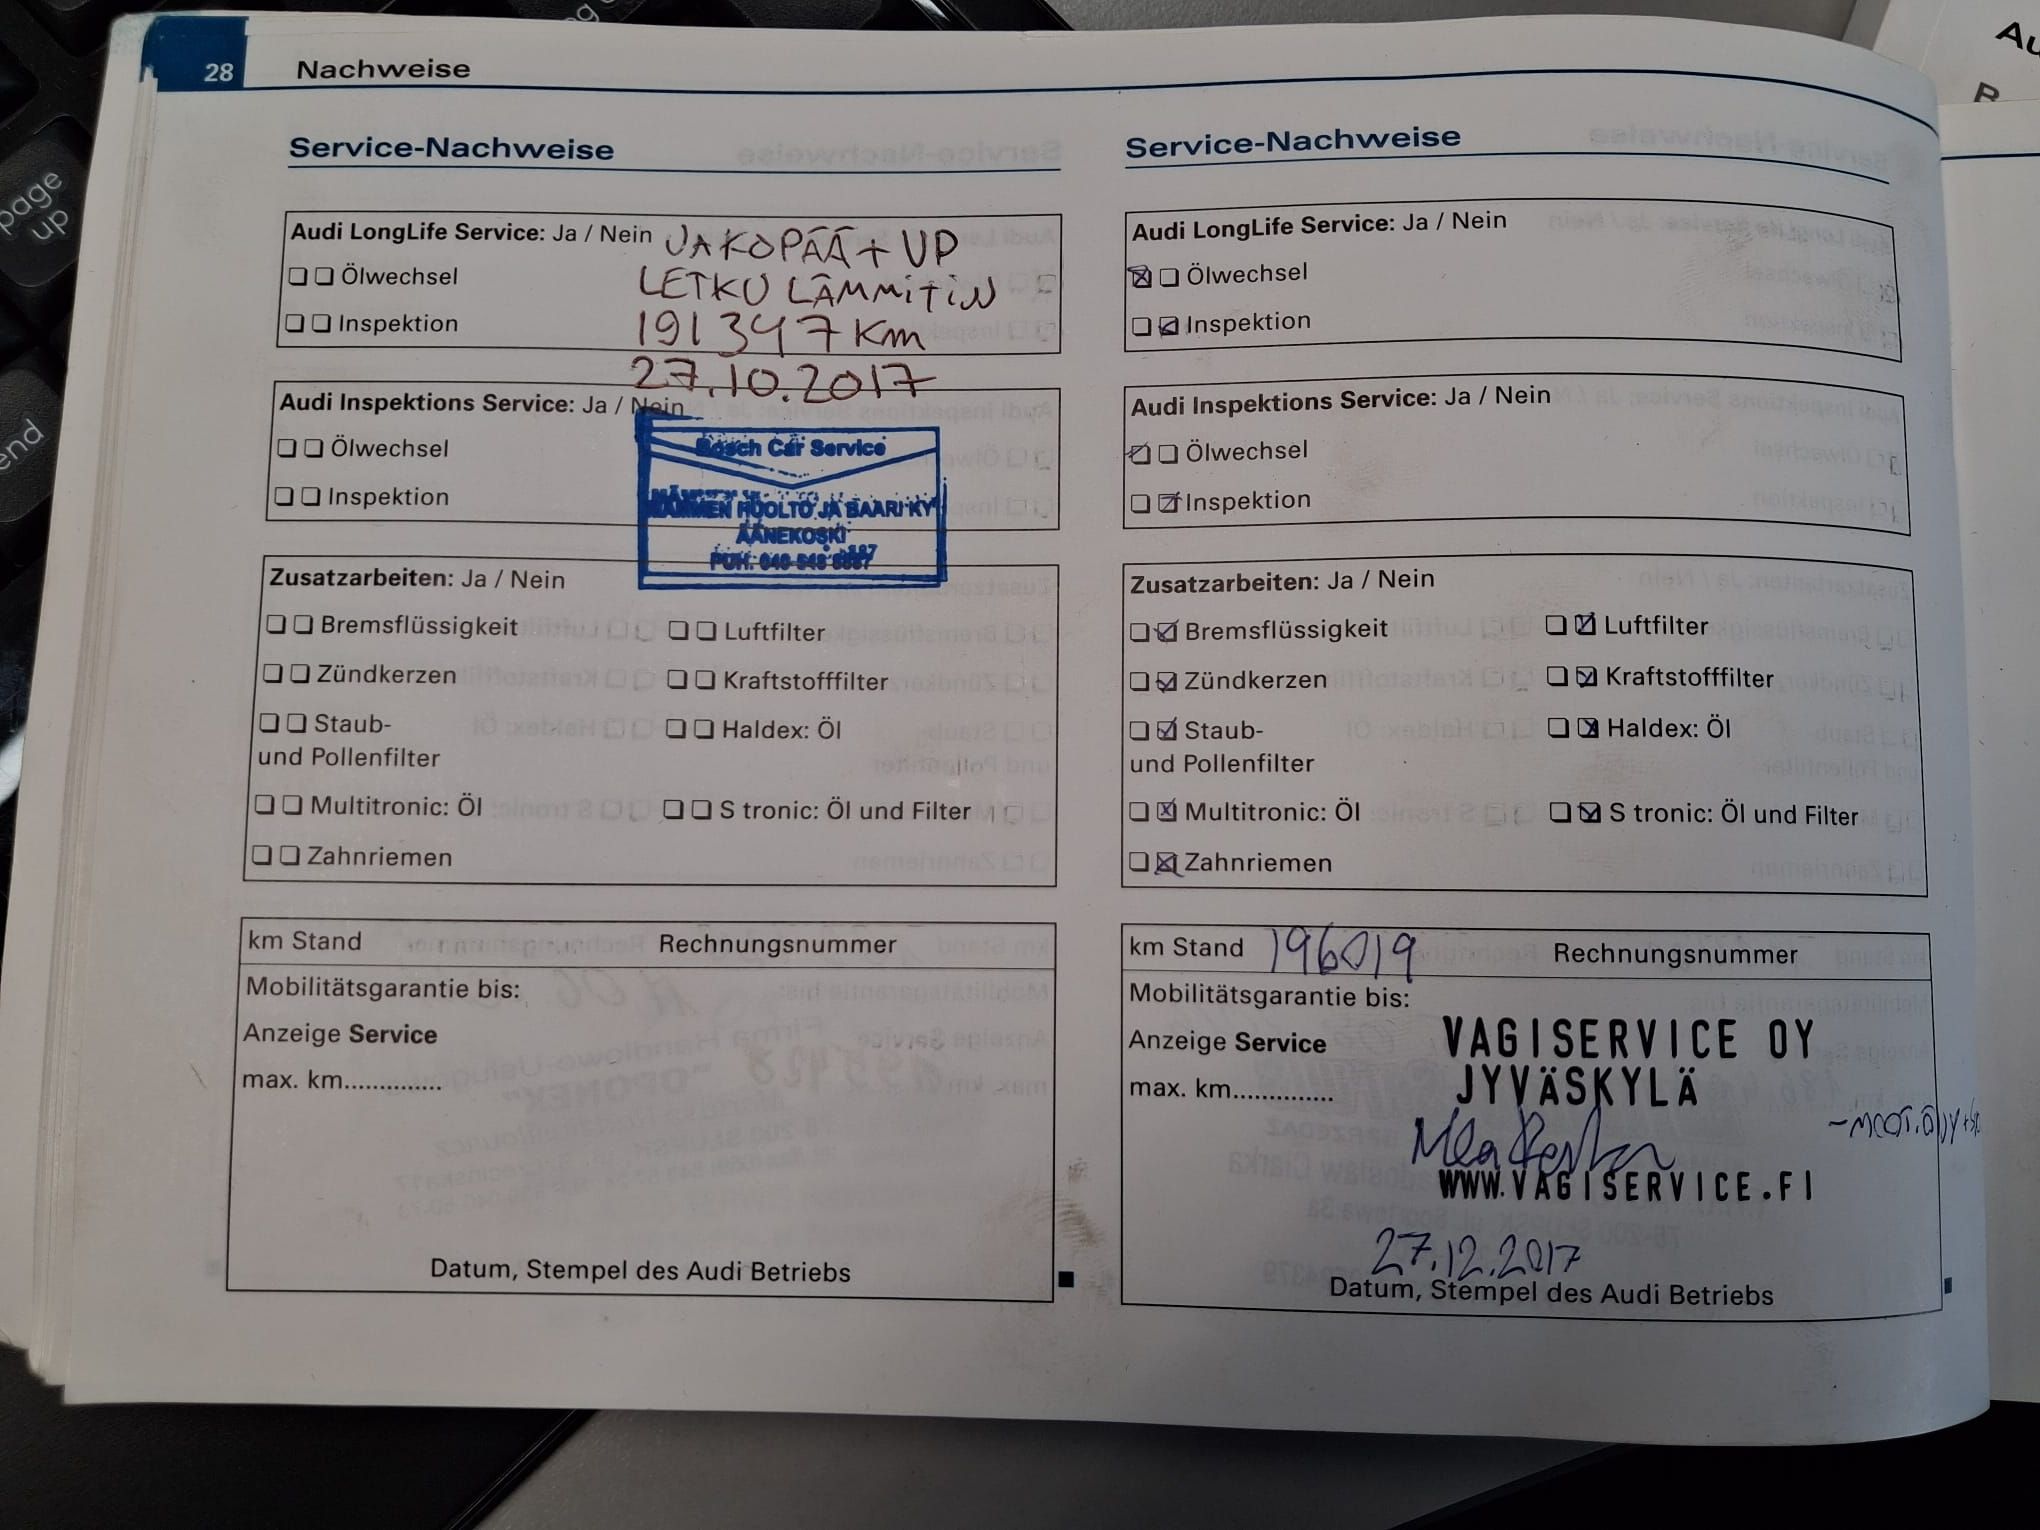 28 Nachweise
Service-Nachweise
Audi LongLife Service: Ja / Nein
JAKOPÄÄ + VP
LETKU LÄMMITIN
191 347 Km
27.10.2017
❏ ❏ Ölwechsel
❏ ❏ Inspektion
Audi Inspektions Service: Ja / Nein
❏ ❏ Ölwechsel
❏ ❏ Inspektion
Bosch Car Service
HUOLTO JA BAARI KY
ÄÄNEKOSKI
PUH. 040-548 8887
Zusatzarbeiten: Ja / Nein
❏ ❏ Bremsflüssigkeit ❏ ❏ Luftfilter
❏ ❏ Zündkerzen ❏ ❏ Kraftstofffilter
❏ ❏ Staub- ❏ ❏ Haldex: Öl
und Pollenfilter
❏ ❏ Multitronic: Öl ❏ ❏ S tronic: Öl und Filter
❏ ❏ Zahnriemen
km Stand Rechnungsnummer
Mobilitätsgarantie bis:
Anzeige Service
max. km..............
Datum, Stempel des Audi Betriebs
Service-Nachweise
Audi LongLife Service: Ja / Nein
☒ ❏ Ölwechsel
❏ ☑ Inspektion
Audi Inspektions Service: Ja / Nein
☑ ❏ Ölwechsel
❏ ☑ Inspektion
Zusatzarbeiten: Ja / Nein
❏ ☑ Bremsflüssigkeit ❏ ☑ Luftfilter
❏ ☑ Zündkerzen ❏ ☑ Kraftstofffilter
❏ ☑ Staub- ❏ ☒ Haldex: Öl
und Pollenfilter
❏ ☒ Multitronic: Öl ❏ ☑ S tronic: Öl und Filter
❏ ☒ Zahnriemen
km Stand 196019 Rechnungsnummer
Mobilitätsgarantie bis:
Anzeige Service
max. km..............
VAGISERVICE OY
JYVÄSKYLÄ
WWW.VAGISERVICE.FI
27.12.2017
Datum, Stempel des Audi Betriebs
page
up
end
Au